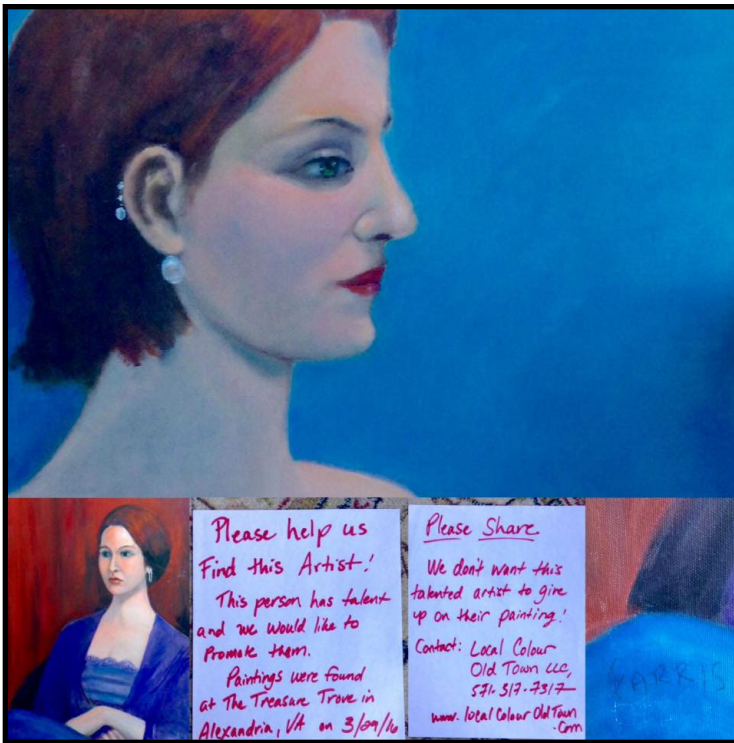 Please help us
Find this Artist!
This person has talent
and we would like to
Promote them.
Paintings were found
at The Treasure Trove in
Alexandria, VA on 3/29/16
Please Share
We don't want this
talented artist to give
up on their painting!
Contact: Local Colour
Old Town LLC,
571.317.7317
www.localColourOldTown
.Com